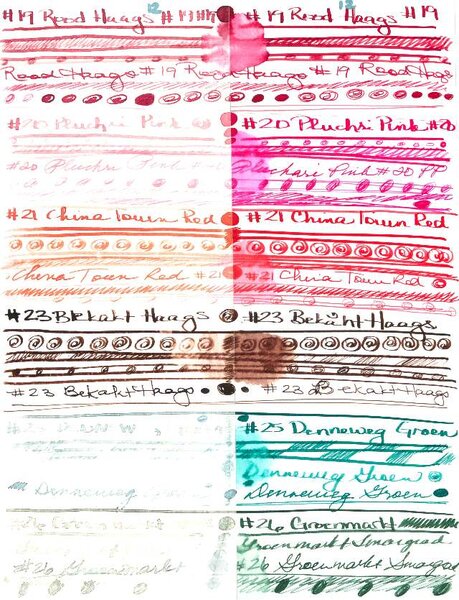 #19 Rood Haags #19 #19 Rood Haags #19
12 12
Rood Haags #19 Rood Haags #19 Rood Haags
#20 Pluchri Pink #20 #20 Pluchri Pink #20
#20 Pluchari Pink #20 Pluchari Pink #20 PP
#21 China Town Red #21 China Town Red
China Town Red #21 #21 China Town Red
#23 Bekakt Haags #23 Bekakt Haags
#23 Bekakt Haags #23 Bekakt Haags
#25 #25 Denneweg Groen
Denneweg Groen
Denneweg Groen Denneweg Groen
#26 Groenmarkt
Groenmarkt Smaragd
#26 Groenmarkt #26 Groenmarkt Smaragd